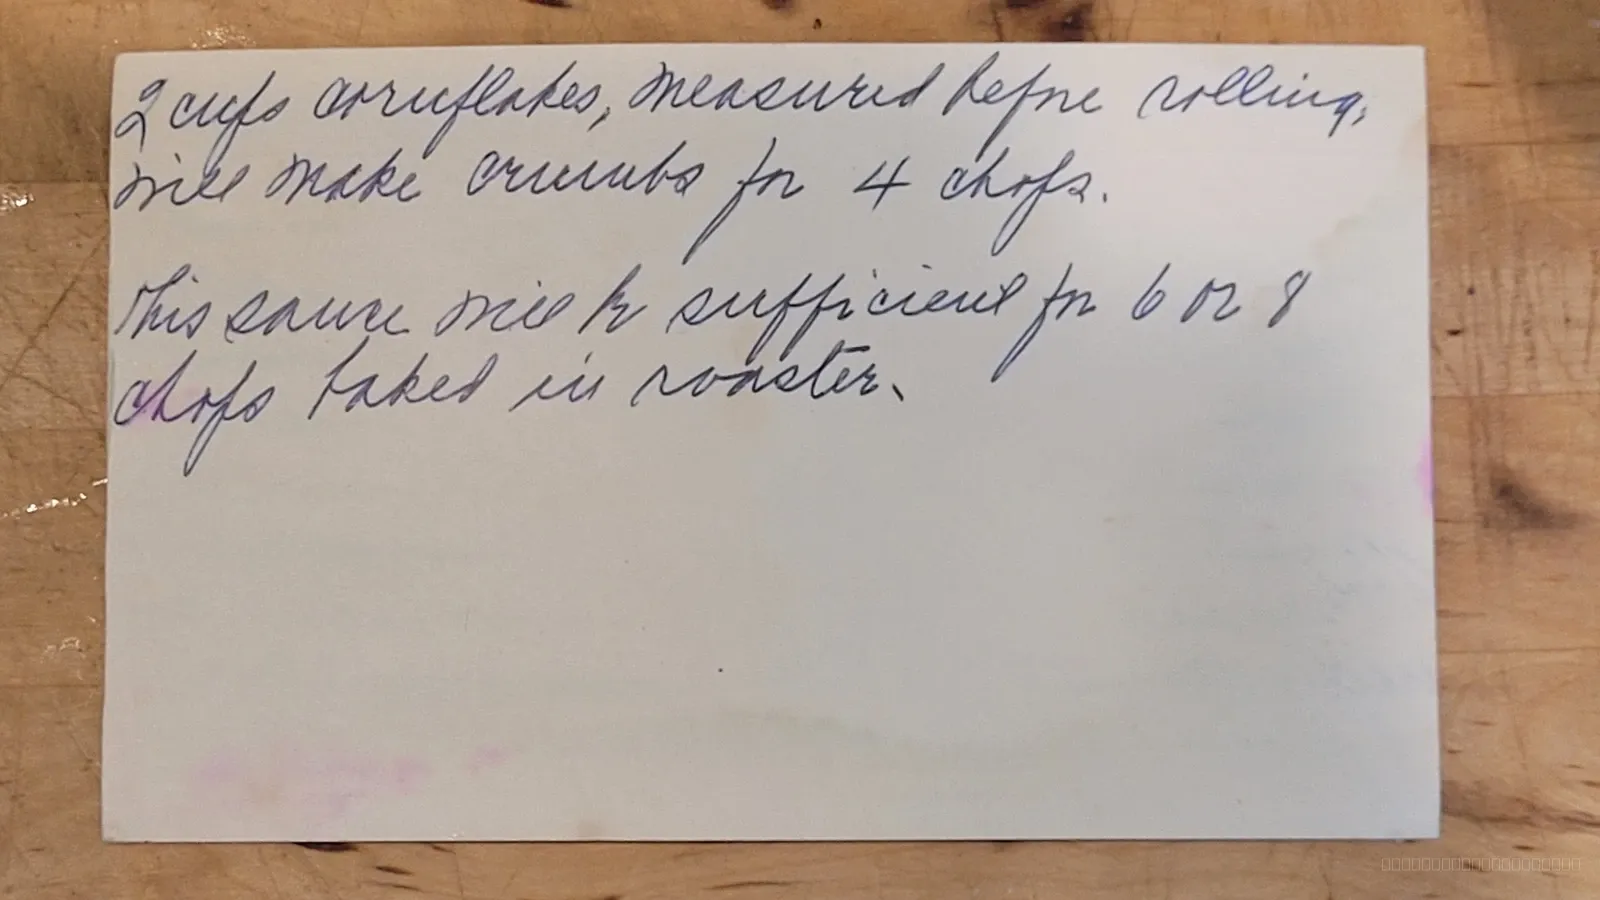 2 cups cornflakes, measured before rolling,
will make crumbs for 4 chops.
This sauce will be sufficient for 6 or 8
chops baked in roaster.